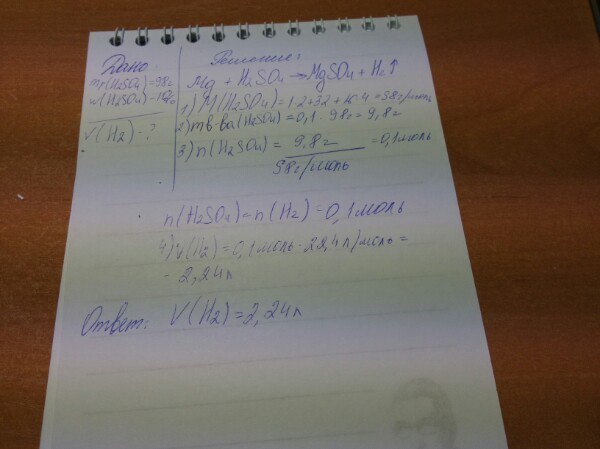 Дано:
mр(H2SO4)=98г
w(H2SO4)=10%
V(H2)-?
Решение:
Mg + H2SO4 → MgSO4 + H2↑
1) M(H2SO4)=1·2+32+16·4=98г/моль
2) mв-ва(H2SO4)=0,1·98г=9,8г
3) n(H2SO4) = 9,8г / 98г/моль =0,1моль
n(H2SO4)=n(H2)=0,1моль
4) V(H2)=0,1моль·22,4л/моль=
- 2,24л
Ответ: V(H2)=2,24л